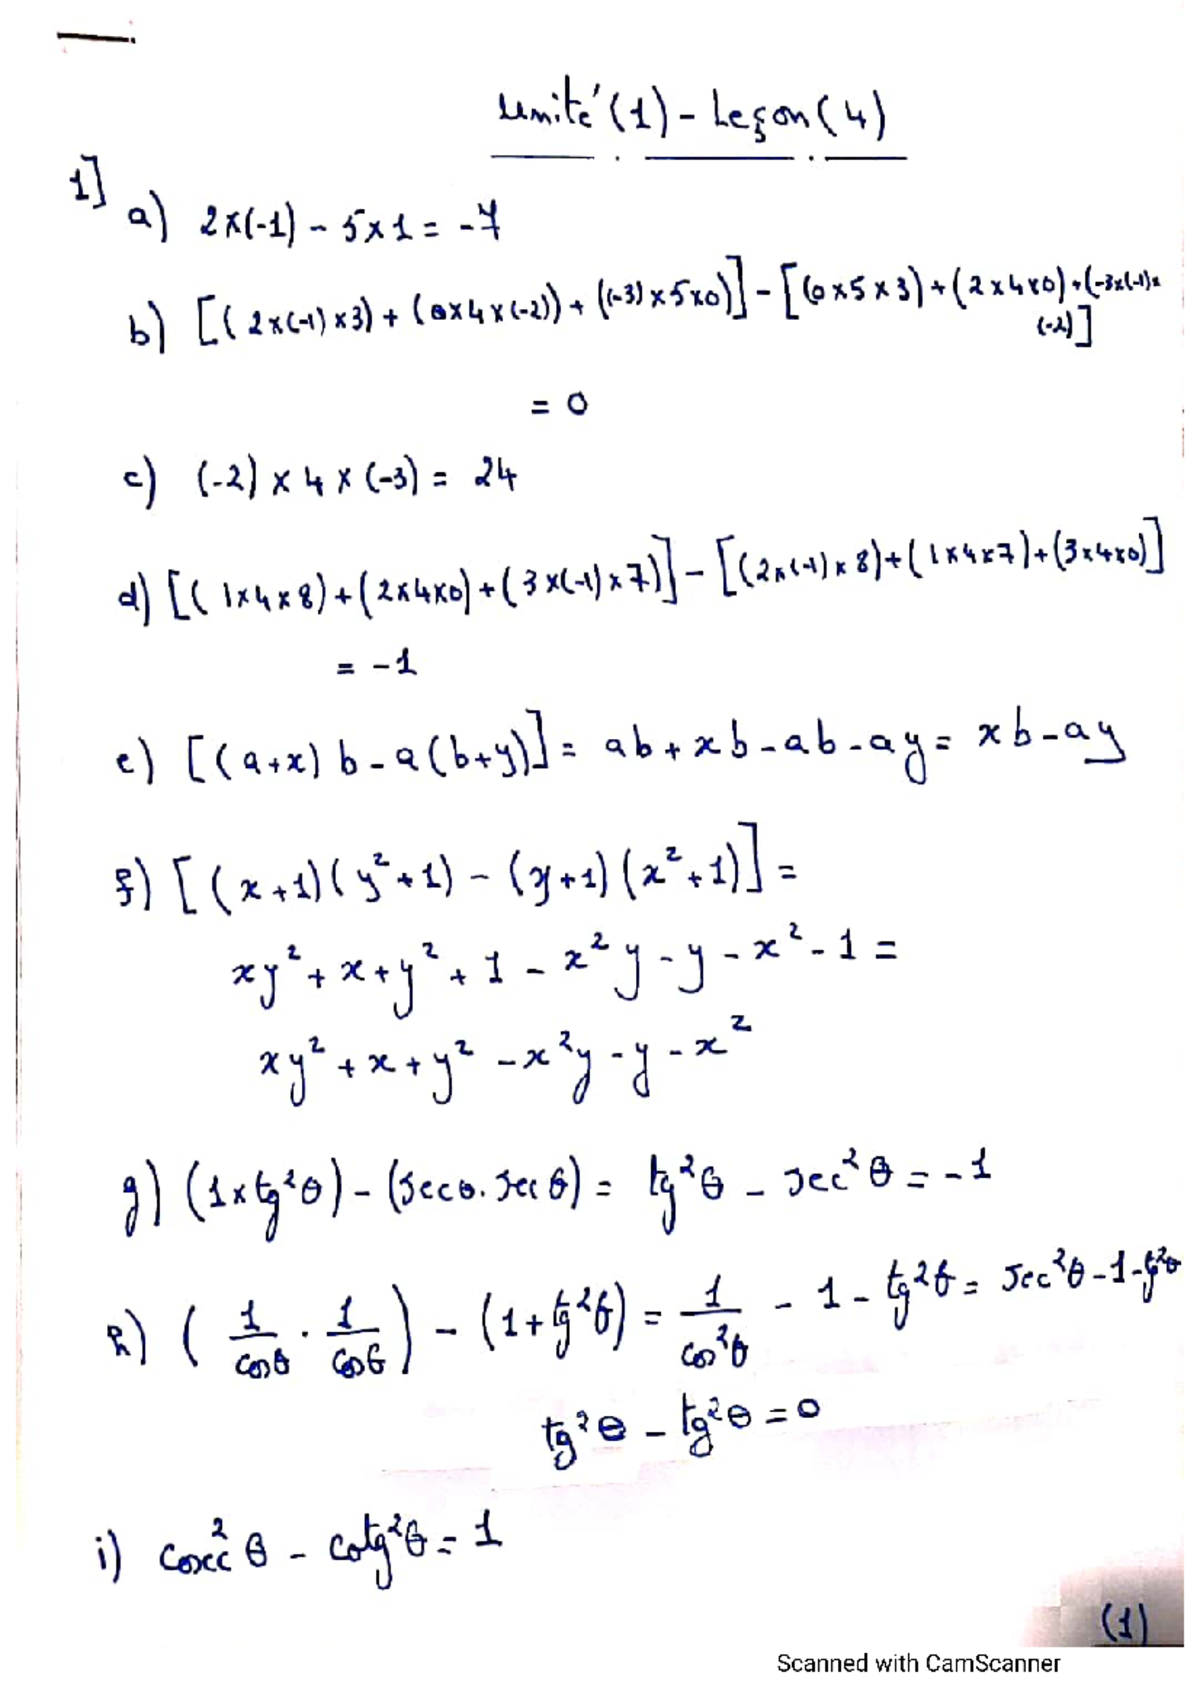 Unité (1) - Leçon (4)
1]
a) 2×(-1) - 5×1 = -7
b) [(2×(-1)×3) + (0×4×(-2)) + ((-3)×5×0)] - [(0×5×3) + (2×4×0) + (-3×(-1)×
(-2)]
= 0
c) (-2) × 4 × (-3) = 24
d) [(1×4×8) + (2×4×0) + (3×(-1)×7)] - [(2×(-1)×8) + (1×4×7) + (3×4×0)]
= -1
e) [(a+x) b - a(b+y)] = ab + xb - ab - ay = xb - ay
f) [(x+1)(y²+1) - (y+1)(x²+1)] =
xy² + x + y² + 1 - x²y - y - x² - 1 =
xy² + x + y² - x²y - y - x²
g) (1×tg²θ) - (secθ . secθ) = tg²θ - sec²θ = -1
h) (1/cosθ . 1/cosθ) - (1 + tg²θ) = 1/cos²θ - 1 - tg²θ = sec²θ - 1 - tg²θ
tg²θ - tg²θ = 0
i) cosec²θ - cotg²θ = 1
(1)
Scanned with CamScanner